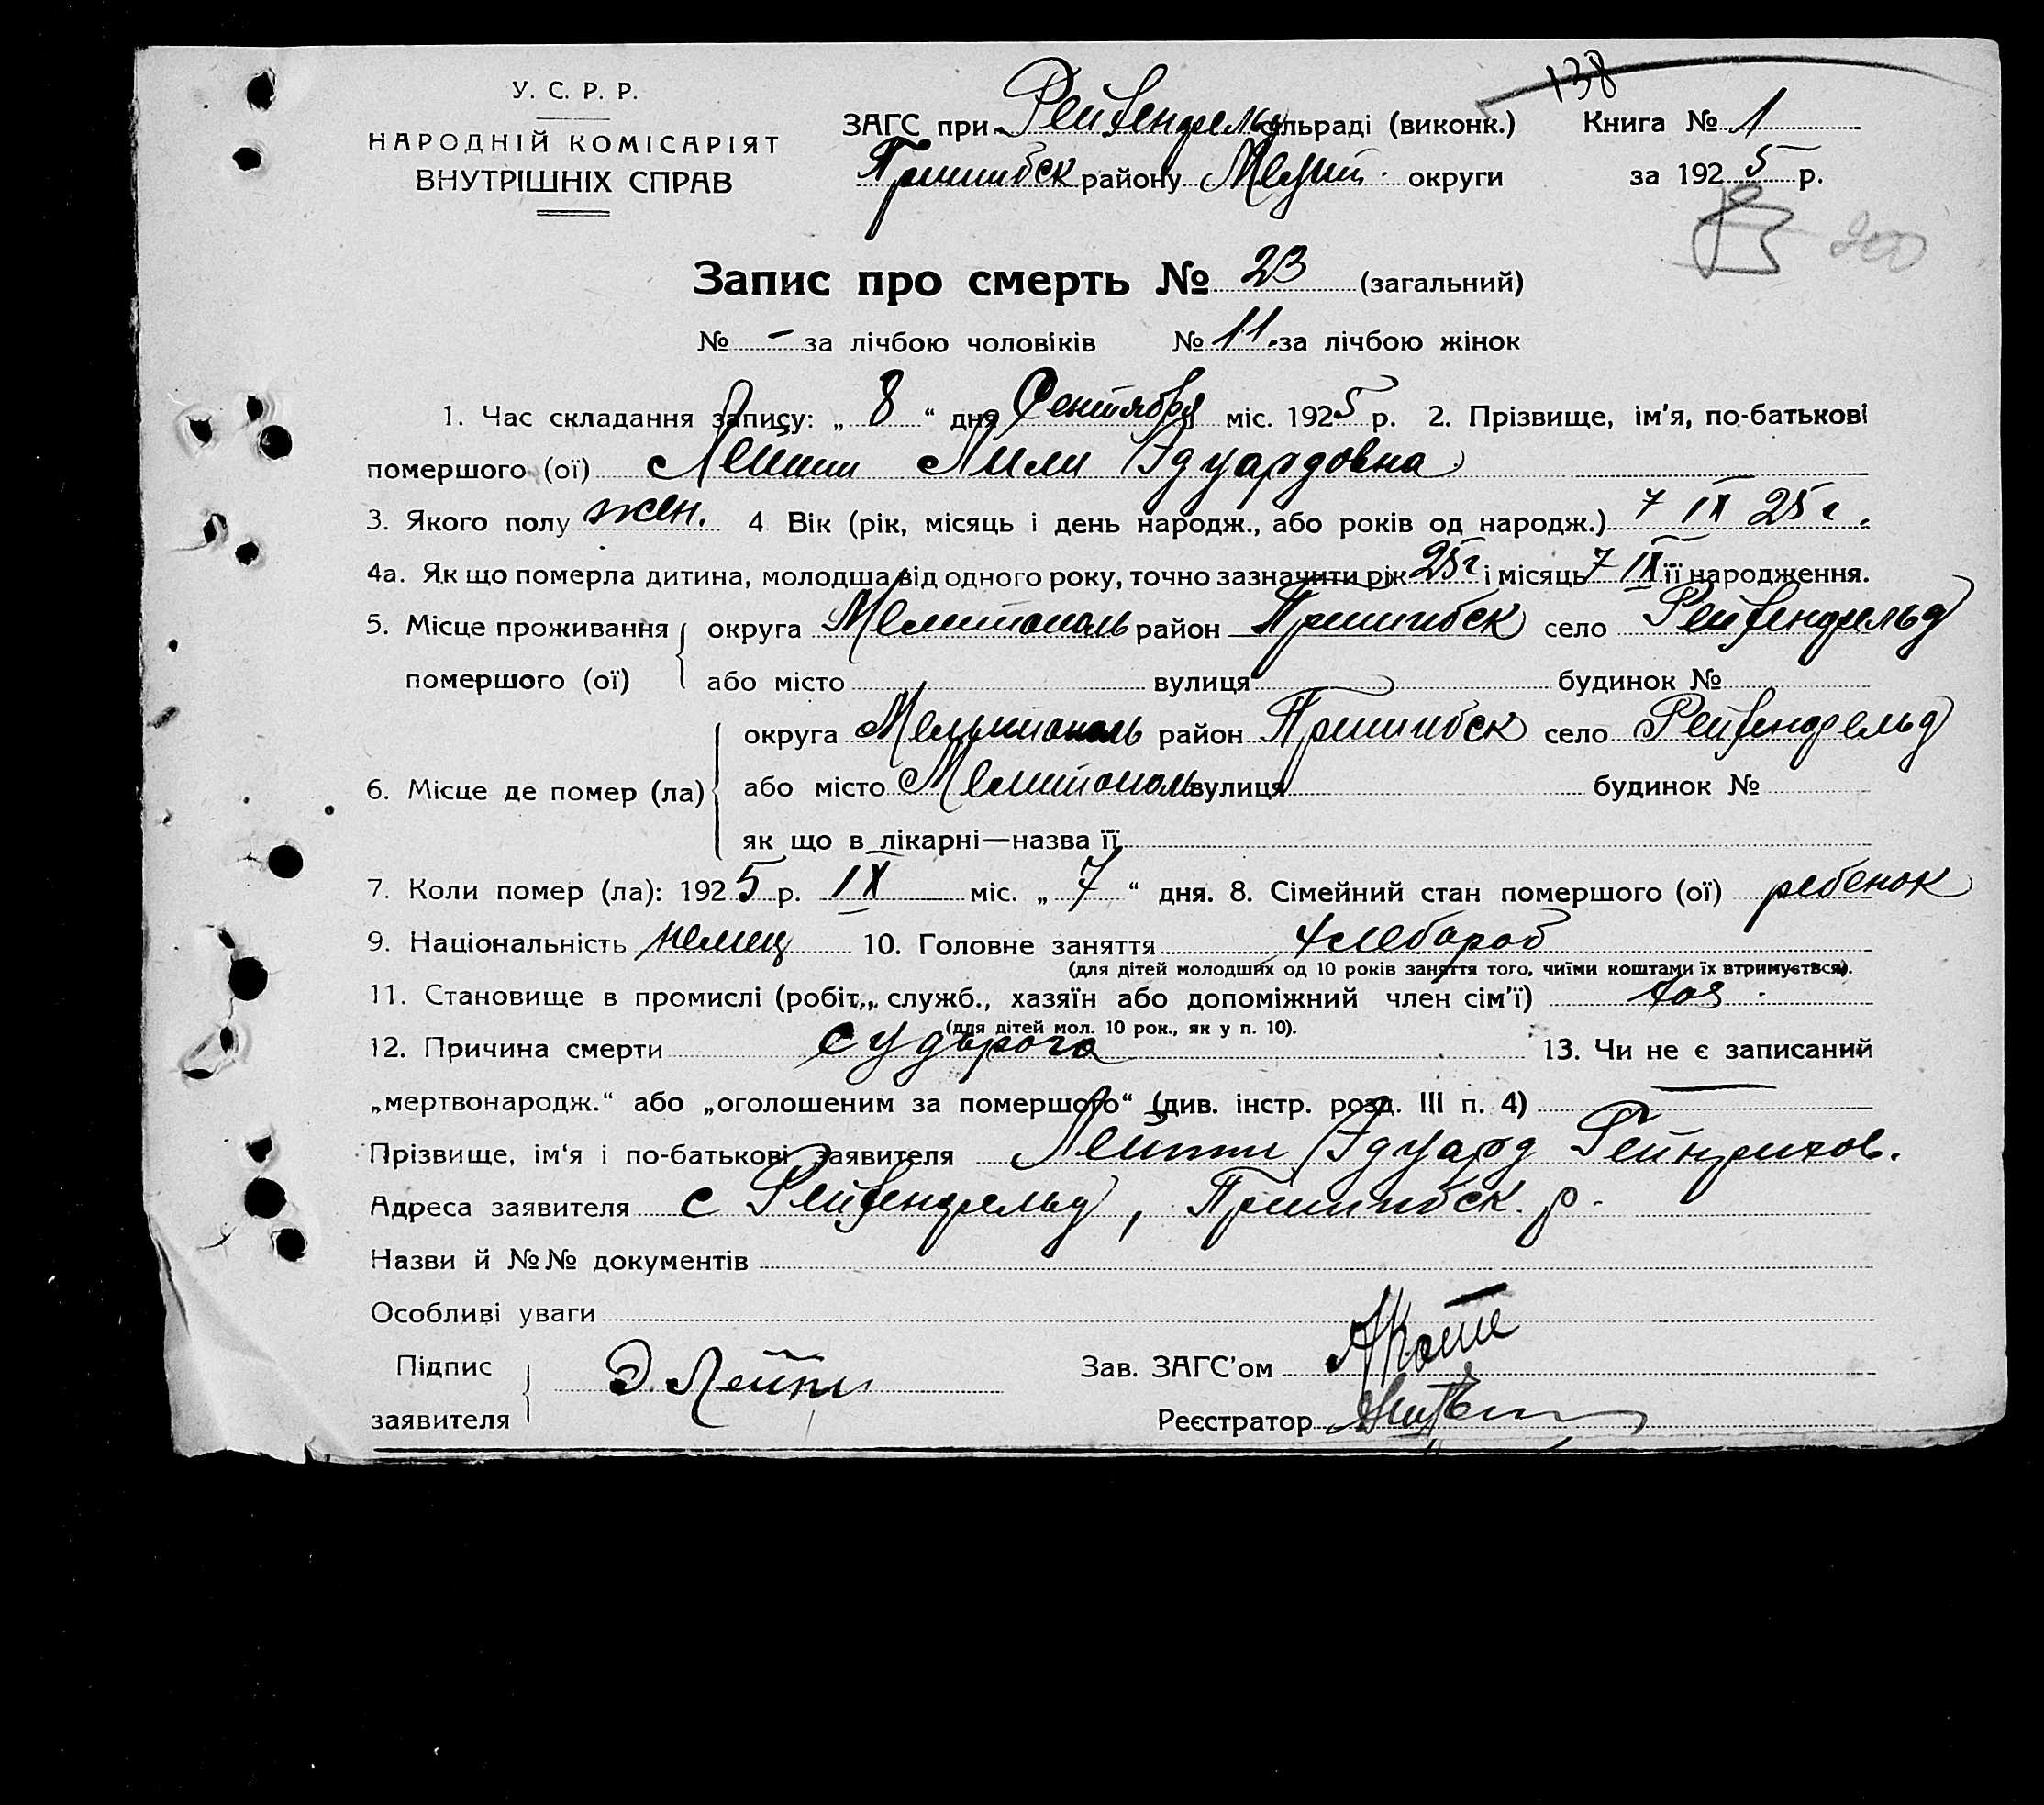 138
У. С. Р. Р.
НАРОДНІЙ КОМІСАРІЯТ
ВНУТРІШНІХ СПРАВ
ЗАГС при Рейхенфельд сільраді (виконк.) Книга № 1
Пришибск району Мелит. округи за 1925 р.
200
Запис про смерть № 23 (загальний)
№ - за лічбою чоловіків № 11. за лічбою жінок
1. Час складання запису: „ 8 “ дня Сентября міс. 1925 р. 2. Прізвище, ім'я, по-батькові
помершого (ої) Лейпи Лили Эдуардовна
3. Якого полу жен. 4 Вік (рік, місяць і день народж., або років од народж.) 7 IX 25 г.
4а. Як що померла дитина, молодша від одного року, точно зазначити рік 25 г і місяць 7 IX її народження.
5. Місце проживання округа Мелитополь район Пришибск село Рейхенфельд
помершого (ої) або місто вулиця будинок №
округа Мелитополь район Пришибск село Рейхенфельд
6. Місце де помер (ла) або місто Мелитополь вулиця будинок №
як що в лікарні—назва її
7. Коли помер (ла): 1925 р. IX міс. „ 7 “ дня. 8. Сімейний стан помершого (ої) ребенок
9. Національність немец 10. Головне заняття хлебороб
(для дітей молодших од 10 років заняття того, чиїми коштами їх втримується).
11. Становище в промислі (робіт., служб., хазяїн або допоміжний член сім'ї) хоз.
(для дітей мол. 10 рок., як у п. 10).
12. Причина смерти судорога 13. Чи не є записаний
„мертвонародж.“ або „оголошеним за помершого“ (див. інстр. розд. III п. 4)
Прізвище, ім'я і по-батькові заявителя Лейпи Эдуард Гейнрихов.
Адреса заявителя с Рейхенфельд, Пришибск. р.
Назви й №№ документів
Особливі уваги
Підпис
заявителя Э. Лейпи Зав. ЗАГС'ом
Реєстратор